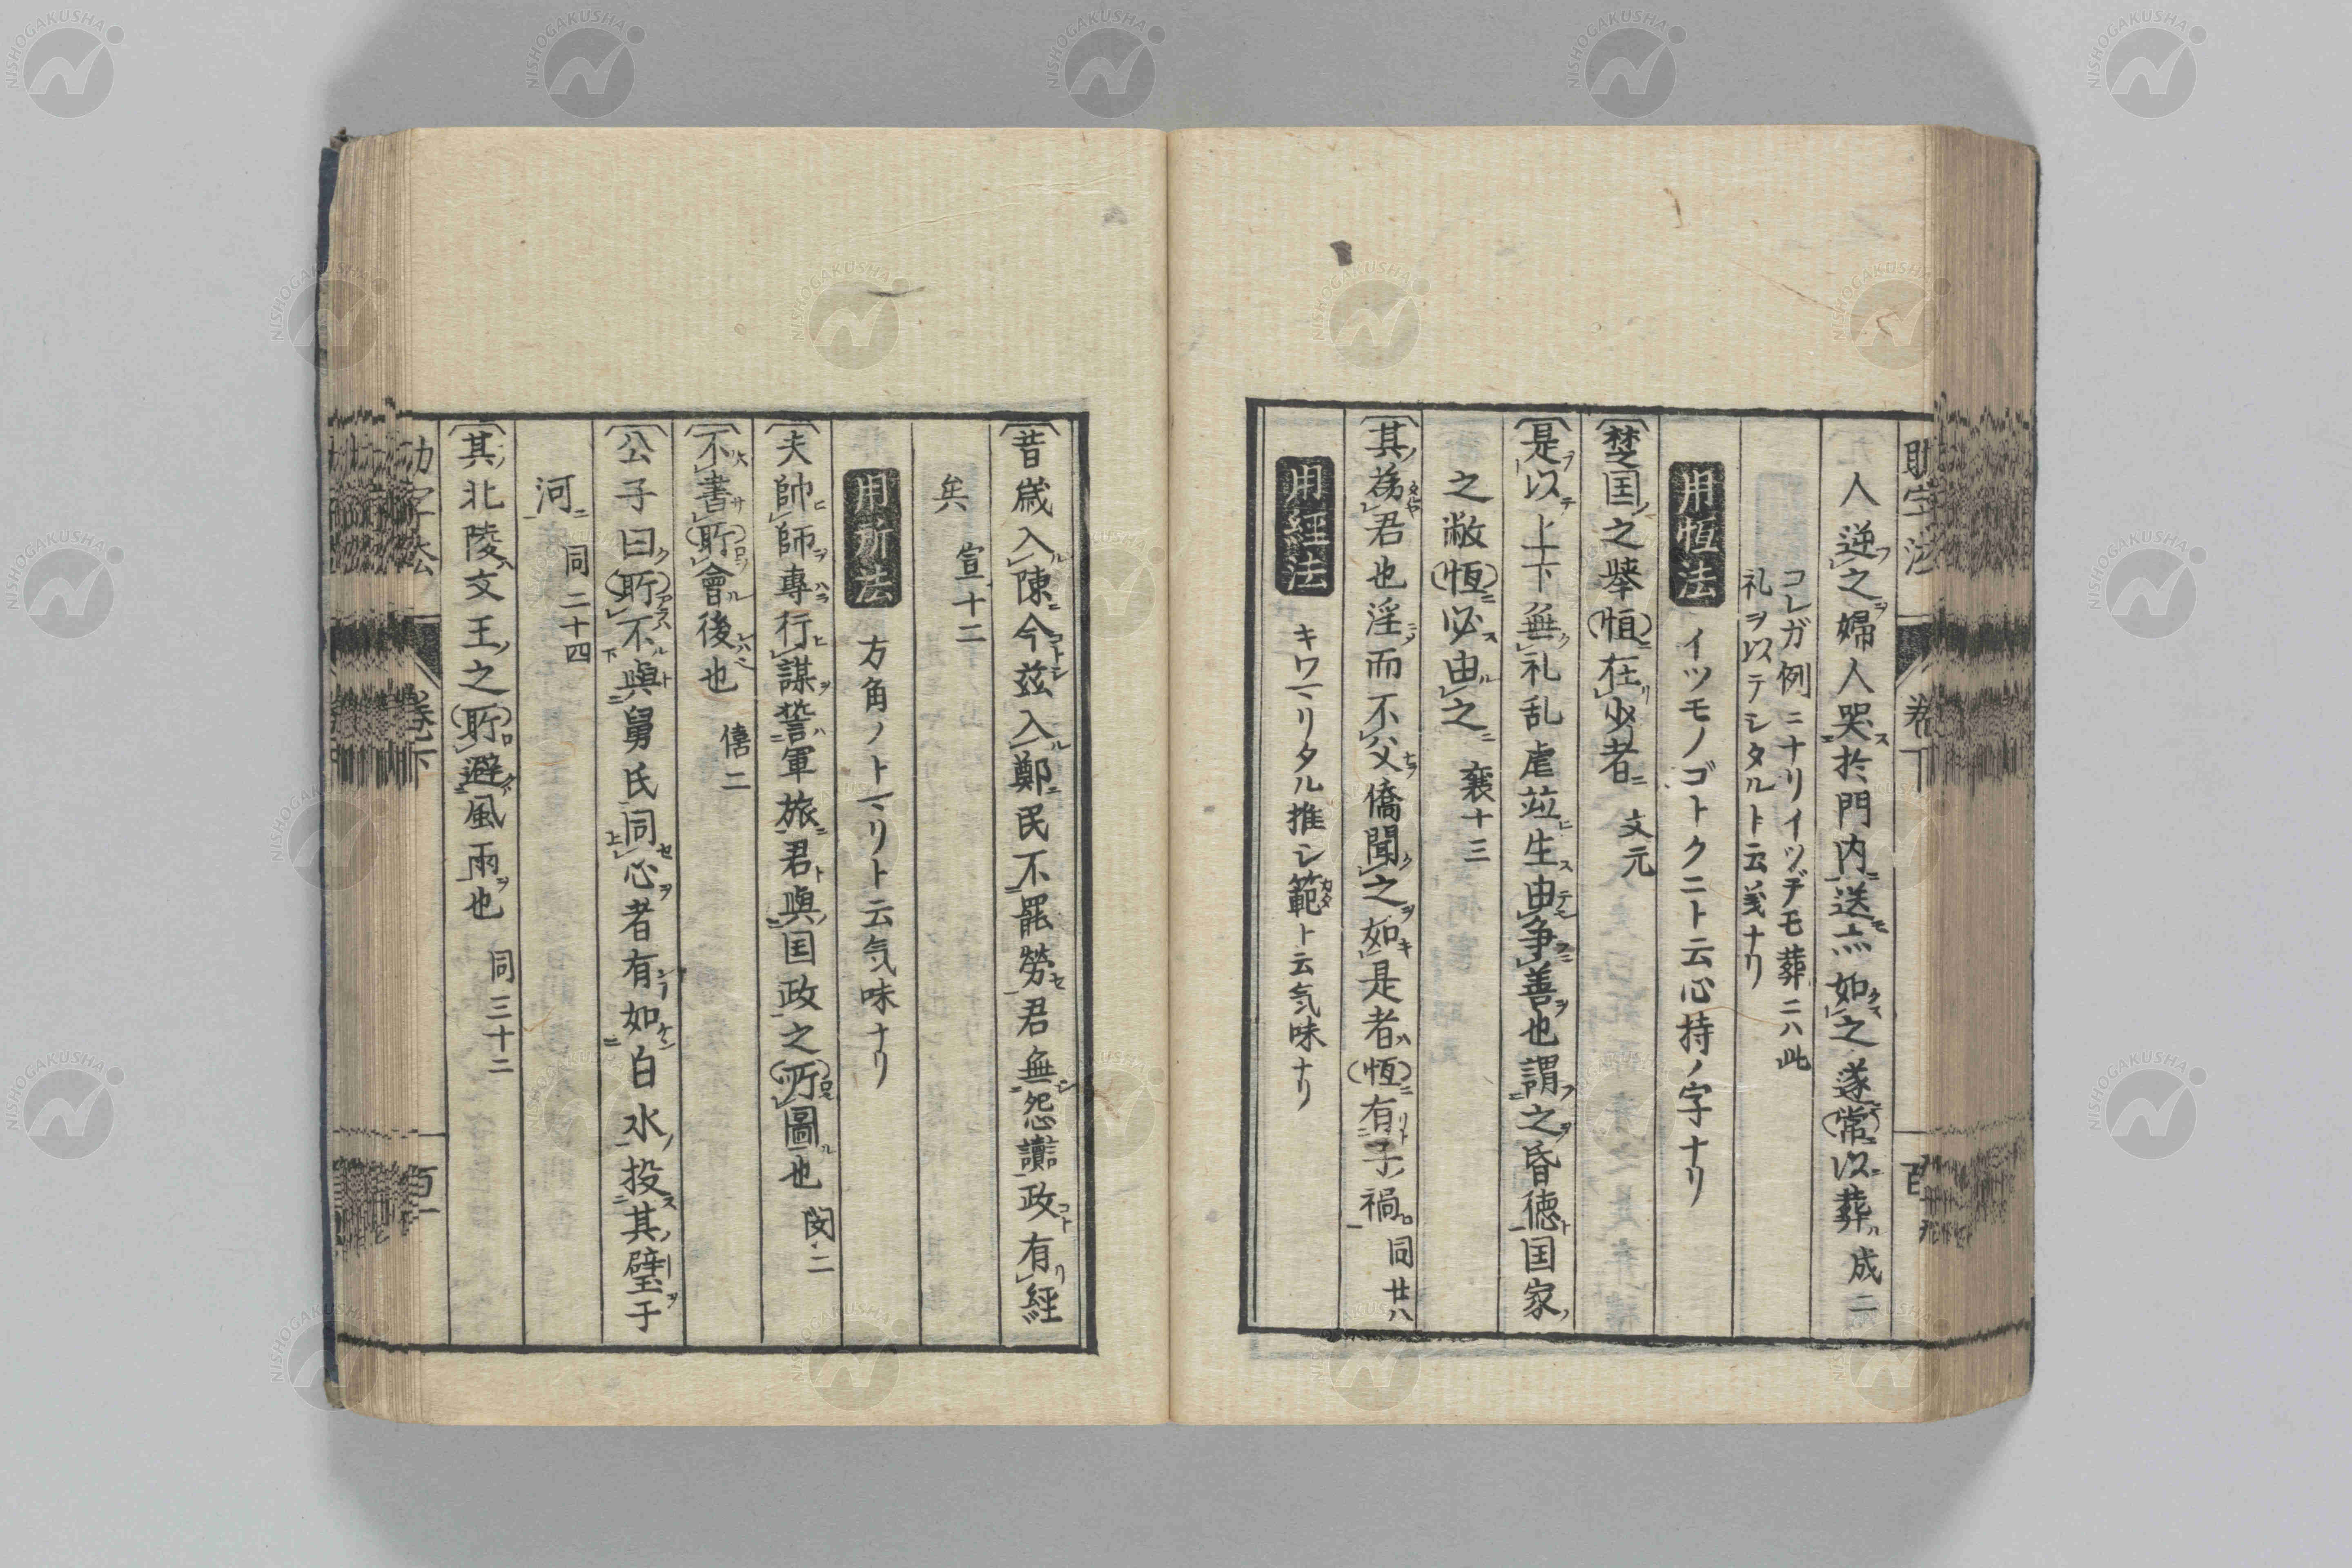 人逆之婦人哭於門内送亦如之遂常以葬 成二
コレガ例ニナリイツデモ葬ニハ此
礼ヲ以テシタルト云義ナリ
用恒法 イツモノゴトクニト云心持ノ字ナリ
楚国之擧恒在少者 文元
是以上下無礼乱虐並生由争善也謂之昏徳国家
之敝恒必由之 襄十三
其為君也淫而不父僑聞之如是者恒有子禍 同廿八
用経法 キワマリタル推シ範ト云気味ナリ
昔歳入陳今茲入鄭民不罷勞君無怨讟政有経
矣 宣十二
用所法 方角ノトマリト云気味ナリ
夫帥師專行謀誓軍旅君與国政之所圖也 閔二
不書所會後也 僖二
公子曰所不與舅氏同心者有如白水投其璧于
河 同二十四
其北陵文王之所避風雨也 同三十二
卷下
NISHOGAKUSHA